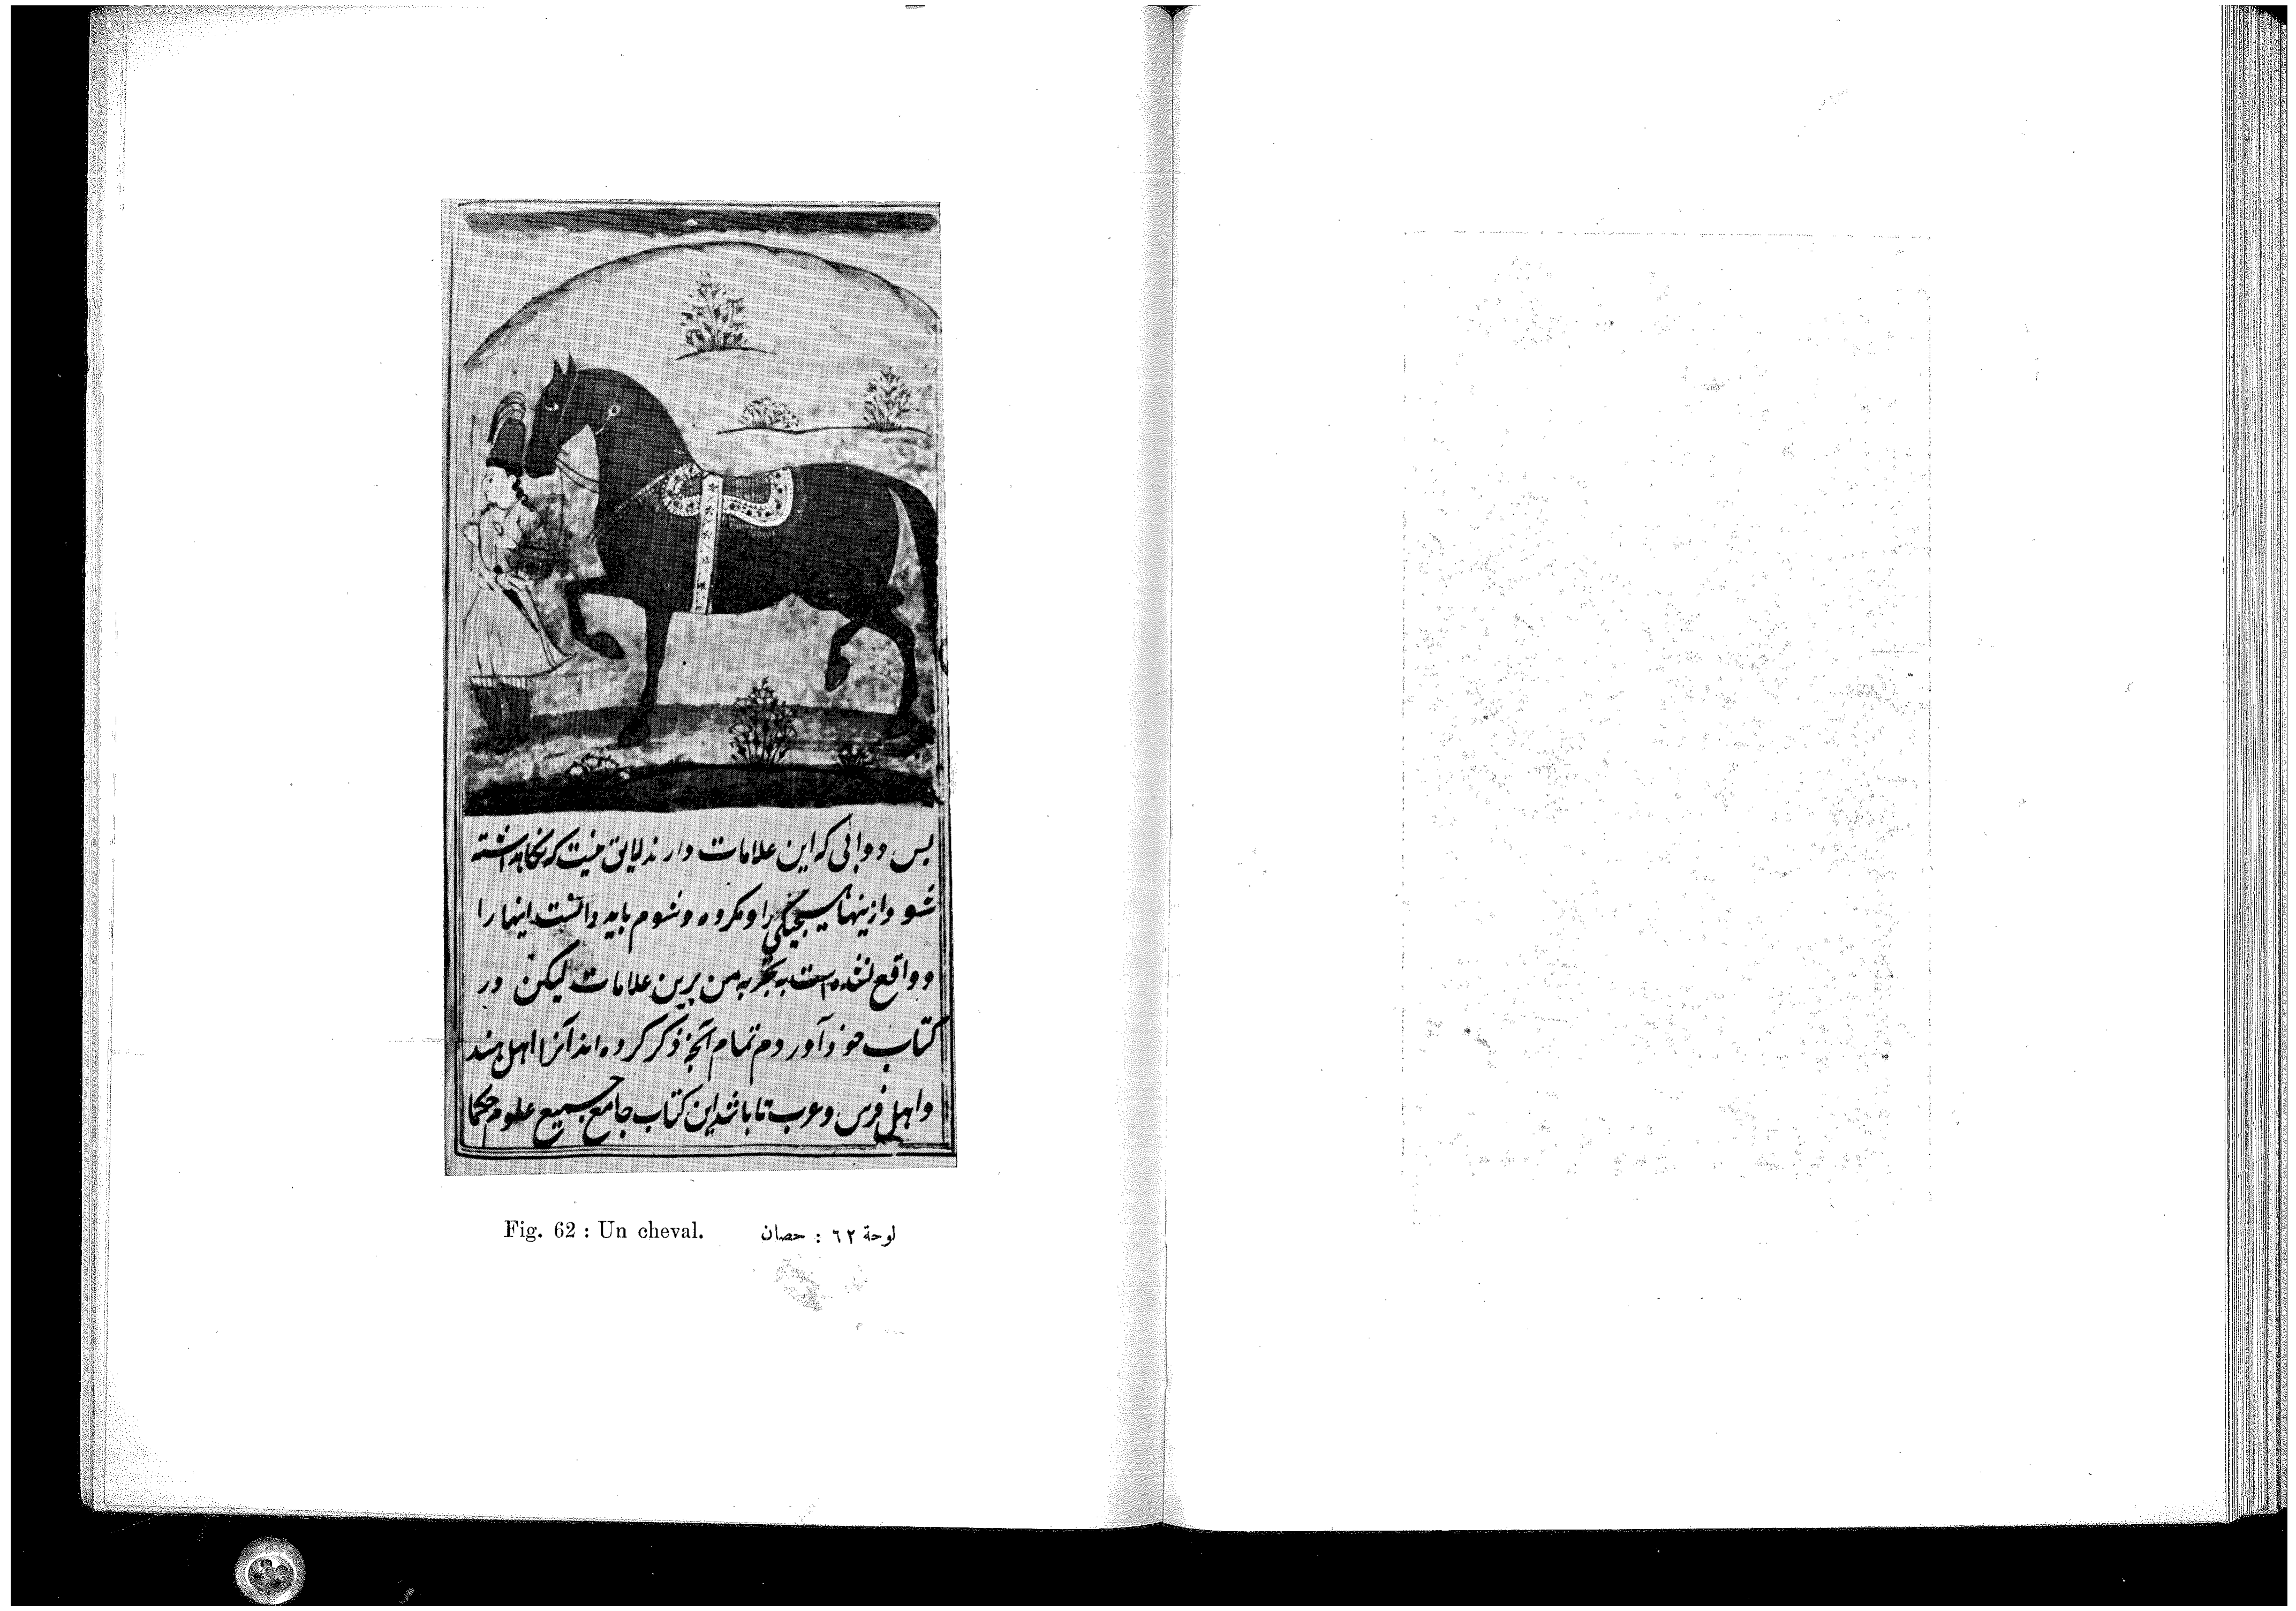 پس دوابی که این علامات دارند لایق نیست که نگاهداشته
شود و ازینها هیچیکی را و مکروه و شوم باید دانست اینها را
و واقع نشده است به تجربه من برین علامات لیکن در
کتاب خود آوردم تمام آنچه ذکر کرده اند آنرا اهل هند
و اهل فرس و عرب تا باشد این کتاب جامع جمیع علوم حکما
Fig. 62 : Un cheval. لوحة ٦٢ : حصان